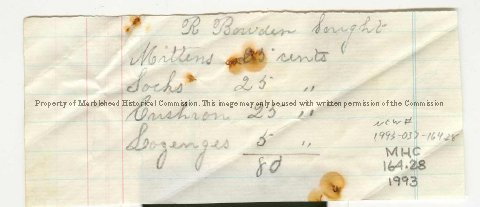 R Bowden bought
Mittens 25 cents
Socks 25 "
Property of Marblehead Historical Commission. This image may only be used with written permission of the Commission
Cushion 25 "
Lozenges 5 "
80
new #
1993-037-16428
MHC
164.28
1993